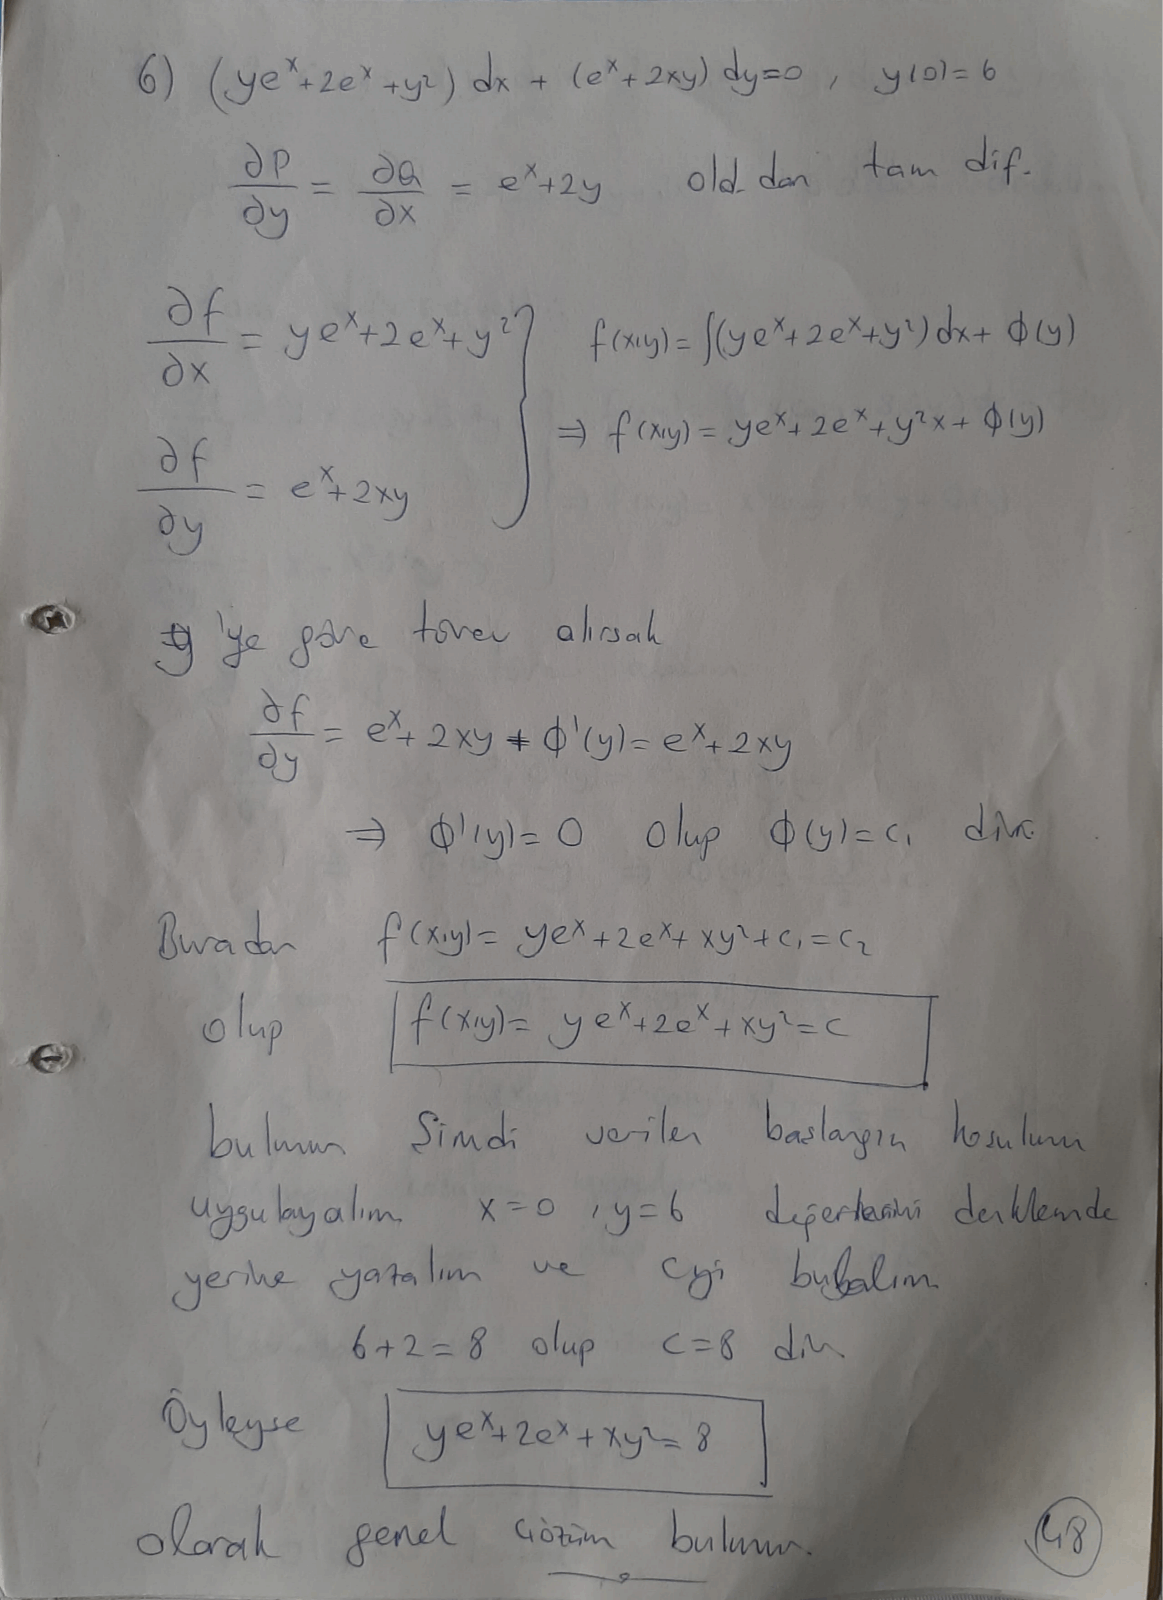 6) (yeˣ+2eˣ+y²) dx + (eˣ+2xy) dy=0 , y(0)=6
∂P/∂y = ∂Q/∂x = eˣ+2y old.dan tam dif.
∂f/∂x = yeˣ+2eˣ+y² } f(x,y)= ∫(yeˣ+2eˣ+y²)dx+ ϕ(y)
⇒ f(x,y)= yeˣ+2eˣ+y²x+ϕ(y)
∂f/∂y = eˣ+2xy
y 'ye göre türev alırsak
∂f/∂y = eˣ+2xy+ϕ'(y)=eˣ+2xy
⇒ ϕ'(y)=0 olup ϕ(y)=c₁ dir.
Buradan f(x,y)= yeˣ+2eˣ+xy²+c₁=c₂
olup f(x,y)= yeˣ+2eˣ+xy²=c
bulunur Simdi verilen baslangıç kosulunu
uygulayalım x=0 , y=6 değerlerini denklemde
yerine yazalım ve c yi bulalım.
6+2=8 olup c=8 dir.
Öyleyse yeˣ+2eˣ+xy²=8
olarak genel çözüm bulunur.
48